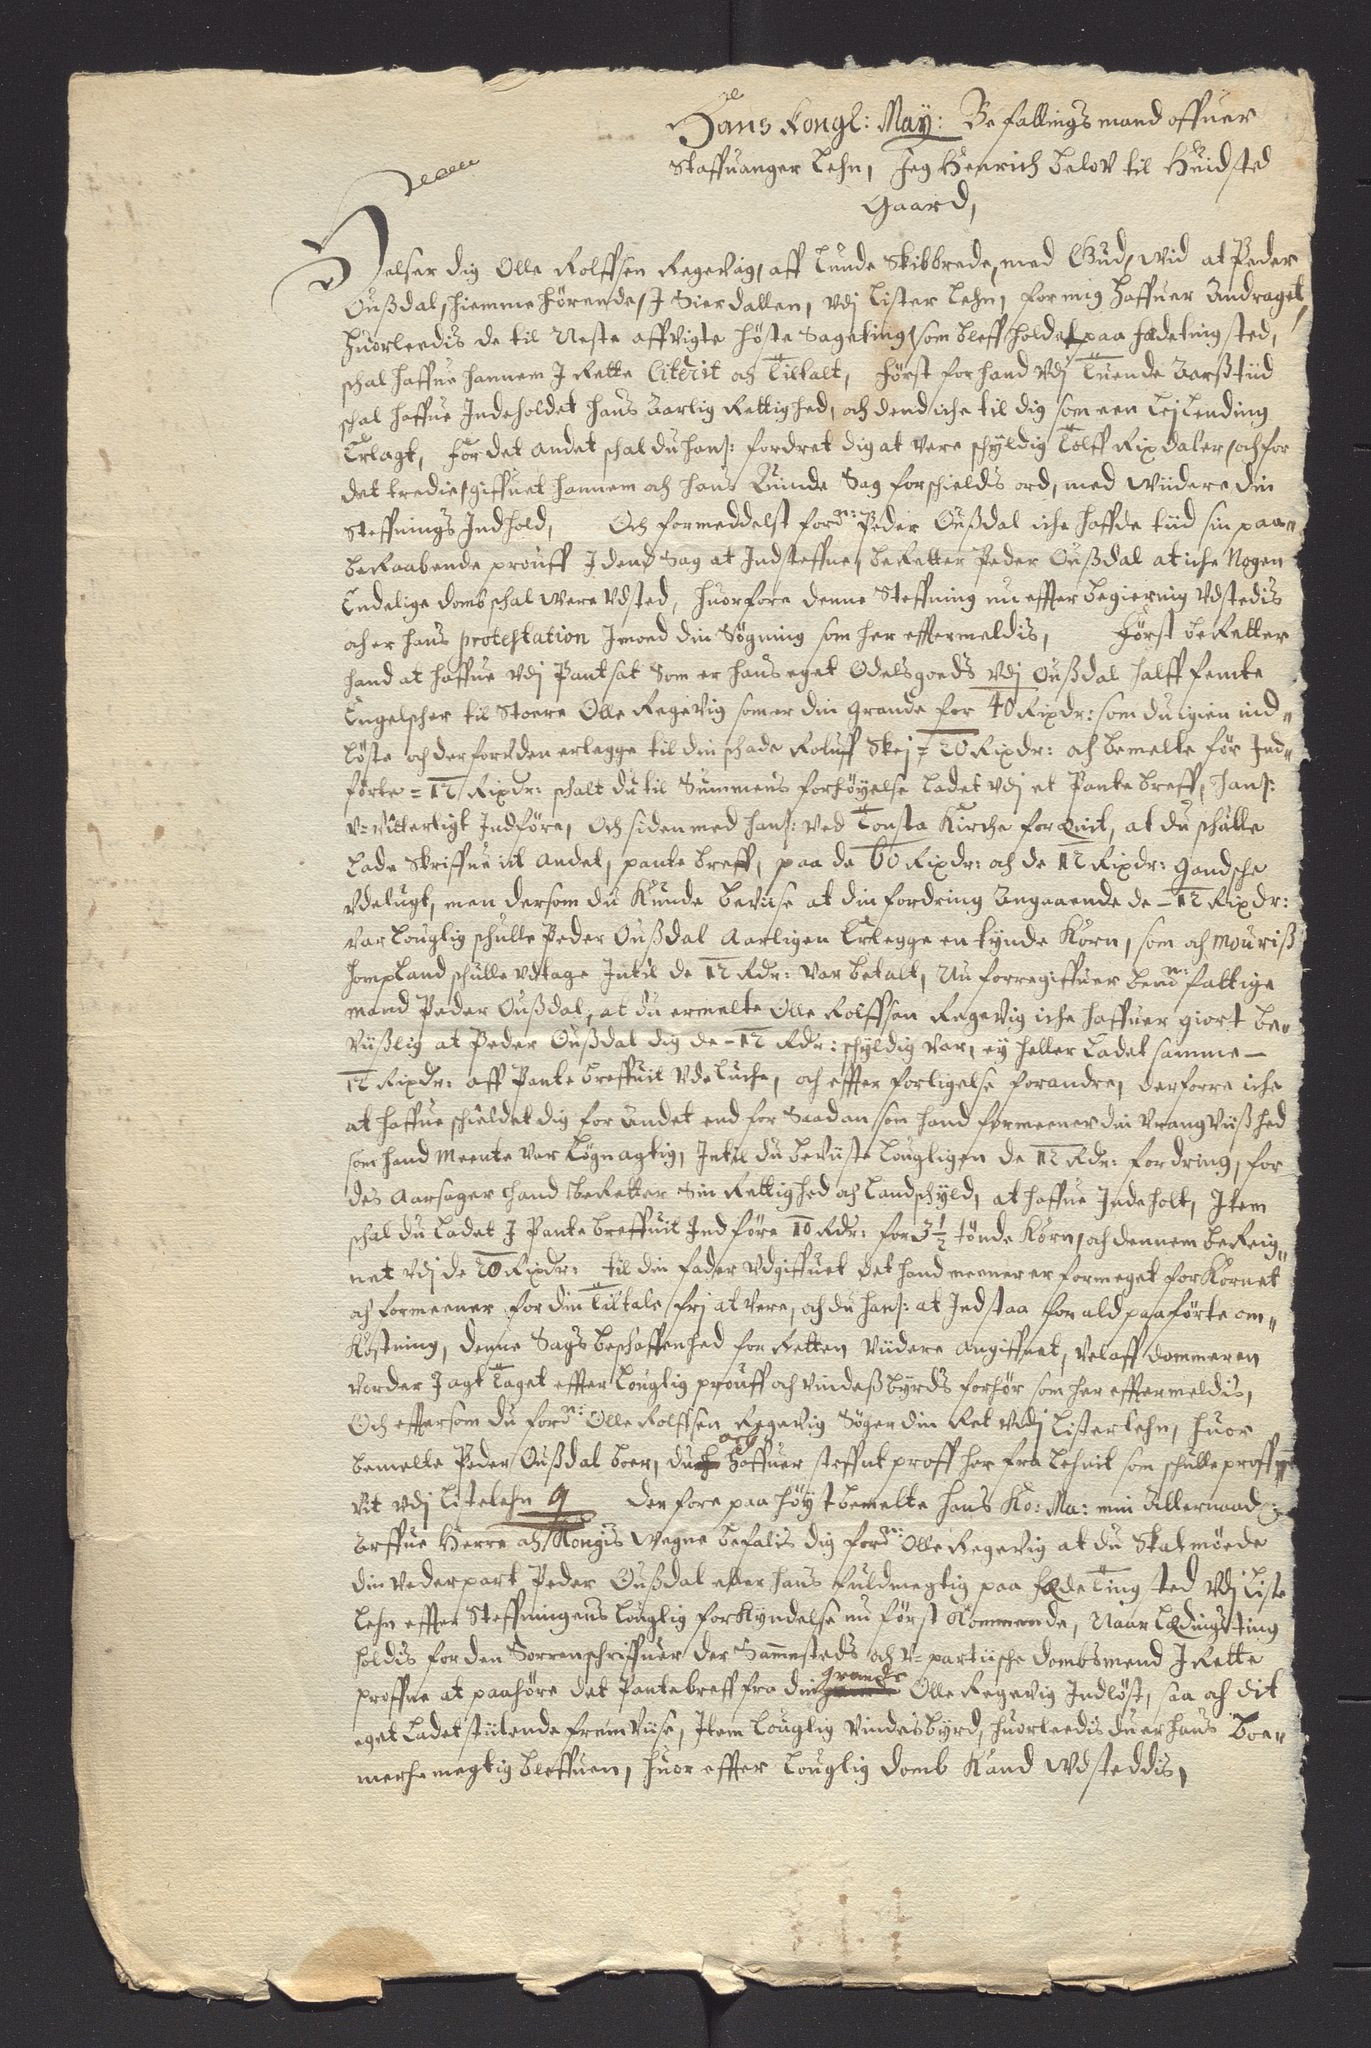 Hans Kongl: May: Befallings mand offuer
Staffuanger Lehn, Jeg Henrich Below til Huidsted
Gaard,
Helser dig Olle Rolffsen Regevig, aff Lunde Skibbrede, med Gud, wid at Peder
Oußdal, hiemmehörende, J Sierdallen, vdj Lister Lehn, for mig haffuer Andraget,
huorleedis de til Neste affvigte höste Sageting, som bleff holdet paa Fedeting sted,
schal haffue hannem J Rette Citerit och Tiltalt, Först for hand vdj Tuende Aarß tiid
schal haffue Jndeholdet hans Aarlig Rettighed, och dend iche til dig som een Lejlending
Erlagt, For det andet schal du hans: fordret dig at vere schyldig Tolff Rix daler, och for
det tredie, giffuet hannem och hans Quinde Sag for schieldis ord, med widere din
Steffnings Jndhold, Och formeddelst ford:ne Peder Oußdal iche haffde tiid sin paa-
beRaabende prouff J dend Sag at Jndsteffne, beRetter Peder Oußdal at iche Nogen
Endelige domb schal were vdsted, huorfore denne Steffning nu effter begiering vdstedis
och er hans protestation Jmoed din Sögning som her effter meldis, Först beRetter
hand at haffue vdj Pantsat Som er hans eget Odelsgoeds vdj Oußdal halff femte
Engelscher til Stoere Olle Regevig som er din grande for 40 Rixdr: som du igien ind-
löste och der foruden erlegge til din schade Roluff Skej = 20 Rixdr: och bemelte för Jnd-
förte = 12 Rixdr: schalt du til Summens forhöyelse ladet vdj et Pante breff, hans:
v-vitterligt Jndföre, Och siden med hans: ved Tonsta Kirche for Quit, at du schulle
lade Skriffue it andet, pante breff, paa de 60 Rixdr: och de 12 Rixdr: gandsche
vdelugt, men dersom du Kunde beviise at din fordring Angaaende de - 12 Rixdr:
var louglig schulle Peder Oußdal Aarligen Erlegge en tynde Korn, som och Mouriß
Hompland schulle vdtage Jntil de 12 Rdr: var betalt, Nu forregiffuer bem:te fattige
mand Peder Oußdal, at du ermelte Olle Rolffsen Regevig iche haffuer giort be-
viißlig at Peder Oußdal dig de - 12 Rdr: schyldig var, ey heller ladet samme -
12 Rixdr: aff Pante breffuit vdeluche, och effter forligelse forandre, derforre iche
at haffue schieldet dig for Andet end for Saadan som hand formeener din vrangviißhed
som hand Meente var lögnagtig, Jntil du beviiste lougligen de 12 Rdr: fordring, for
des Aarsager hand beRetter Sin Rettighed och landschyld, at haffue Jndeholt, Jtem
schal du ladet J Pante breffuit Jndföre 10 Rdr: for 3 1/2 tönde Korn, och dennem beReig-
net vdj de 20 Rixdr: til din fader vdgiffuet det hand meener er for meget for Kornet
och formeener for din Tiltale frj at vere, och du hans: at Jndstaa for ald paaförte om-
Kostning, denne Sags beschaffenhed for Retten viidere angiffuet, vel aff dommeren
vorder J agt Taget effter louglig prouff och vindeßbyrds forhör som her effter meldis,
Och efftersom du ford:ne Olle Rolffsen Regevig Söger din Ret vdj Listerlehn, huor
bemelte Peder Oußdal boer, du och haffuer steffnt proff her fra lehnit som schulle proffuit
vit vdj Listelehn Derfore paa höyst bemelte hans Ko: Ma: min Allernaadigste
Arffue Herre och Kongis wegne befalis dig ford:ne Olle Regevig at du Skal möede
din vederpart Peder Oußdal eller hans fuldmegtig paa Fede Ting sted vdj Liste
Lehn effter Steffningens louglig forkyndelse nu först Kommende, Naar Ledings ting
holdis for den Sorrenschriffuer der Sammesteds och v-partische dombsmend J Rette
proffue at paahöre det Pante breff fra din grande Olle Regevig Jndlöst, saa och dit
eget ladet stiilende frem viise, Jtem louglig vindisbyrd, huorleedis du er hans boe-
merhe megtig bleffuen, huor effter louglig domb Kand wdsteddis,